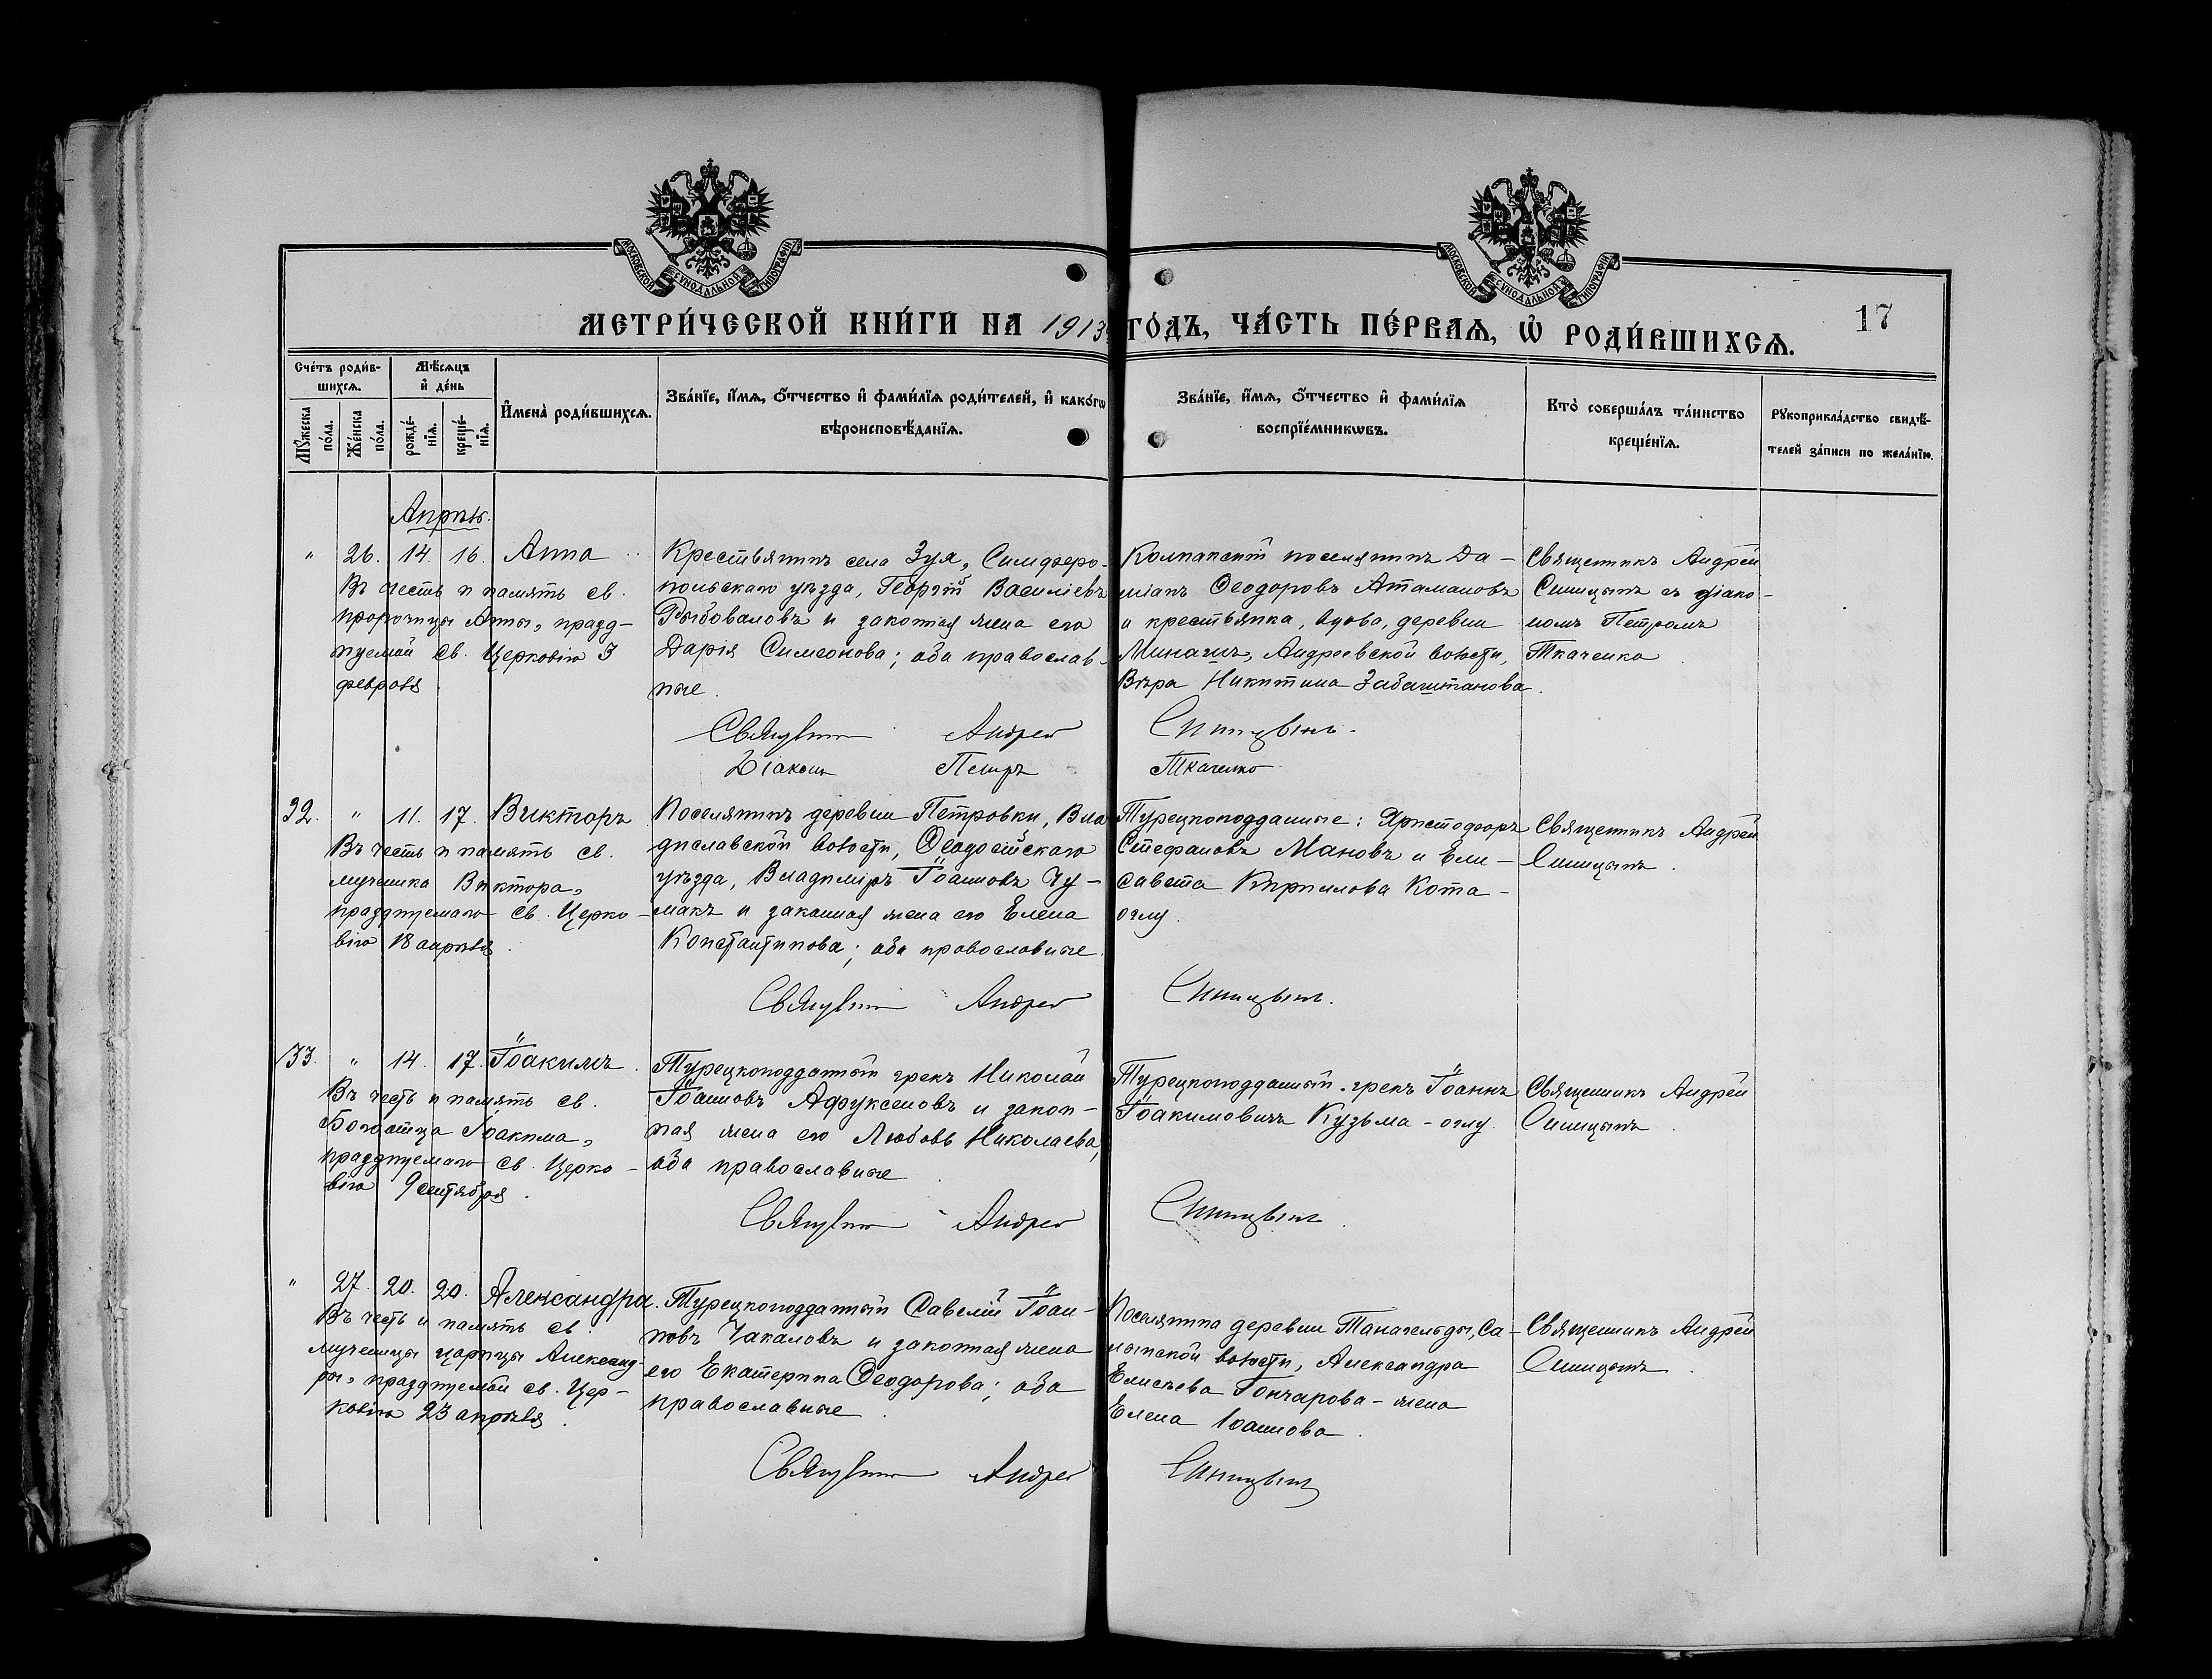 МОСКОВСКОЙ СѴНОДАЛЬНОЙ ТИПОГРАФІИ
МОСКОВСКОЙ СѴНОДАЛЬНОЙ ТИПОГРАФІИ
МЕТРИ́ЧЕСКОЙ КНИ́ГИ НА 1913 ГО́ДЪ, ЧА́СТЬ ПЕ́РВАѦ, Ѡ҆ РОДИ́ВШИХСѦ.
17
Сче́тъ роди́в-
шихсѧ.
Мѣ́сѧцъ
и҆ де́нь
Мꙋ́жеска
по́ла.
Же́нска
по́ла.
рожде́-
нїѧ.
креще́-
нїѧ.
И҆мена̀ роди́вшихсѧ.
Зва́нїе, и҆́мѧ, ѻ҆́тчество и҆ фами́лїѧ роди́телей, и҆ како́гѡ
вѣроисповѣ́данїѧ.
Зва́нїе, и҆́мѧ, ѻ҆́тчество и҆ фами́лїѧ
воспрїе́мникѡвъ.
Кто̀ соверша́лъ та́инство
креще́нїѧ.
Рꙋкоприкла́дство свидѣ́-
телей за́писи по жела́нїю.
Апрѣль.
" 26. 14. 16. Анна
Въ честь и память св.
пророчицы Анны, празд-
нуемой св. Церковію 3
февраля.
Крестьянинъ села Зуя, Симферо-
польскаго уѣзда, Георгій Василіевъ
Рыбоваловъ и законная жена его
Дарія Симеонова; оба православ-
ные.
поселянинъ Да-
міанъ Ѳеодоровъ Атамановъ
и крестьянка, вдова, деревни
Андреевской волости,
Вѣра Никитина Забаштанова.
Священникъ Андрей
Синицынъ съ діако-
номъ Петромъ
Ткаченко.
Священникъ Андрей Синицынъ.
Діаконъ Петръ Ткаченко
32. " 11. 17. Викторъ
Въ честь и память св.
мученика Виктора,
празднуемаго св. Церко-
вію 18 апрѣля.
Поселянинъ деревни Петровки, Вла-
диславской волости, Ѳеодосійскаго
уѣзда, Владиміръ Іоанновъ Чу-
макъ и законная жена его Елена
Константинова; оба православные.
Турецкоподданные: Христофоръ
Стефановъ Мановъ и Ели-
савета Кириллова Кота-
оглу.
Священникъ Андрей
Синицынъ.
Священникъ Андрей Синицынъ.
33. " 14. 17. Іоакимъ.
Въ честь и память св.
Богоотца Іоакима,
празднуемаго св. Церко-
вію 9 сентября.
Турецкоподданный грекъ Николай
Іоанновъ Афуксеновъ и закон-
ная жена его Любовь Николаева,
оба православные.
Турецкоподданный грекъ Іоаннъ
Іоакимовичъ Кузьма-оглу.
Священникъ Андрей
Синицынъ.
Священникъ Андрей Синицынъ.
" 27. 20. 20. Александра.
Въ честь и память св.
мученицы царицы Александ-
ры, празднуемой св. Цер-
ковію 23 апрѣля.
Турецкоподданный Савелій Іоан-
новъ Чакаловъ и законная жена
его Екатерина Ѳеодорова; оба
православные.
Поселянина деревни Танагельды, Са-
волости, Александра
Елисѣева Гончарова - жена
Елена Іоаннова.
Священникъ Андрей
Синицынъ.
Священникъ Андрей Синицынъ